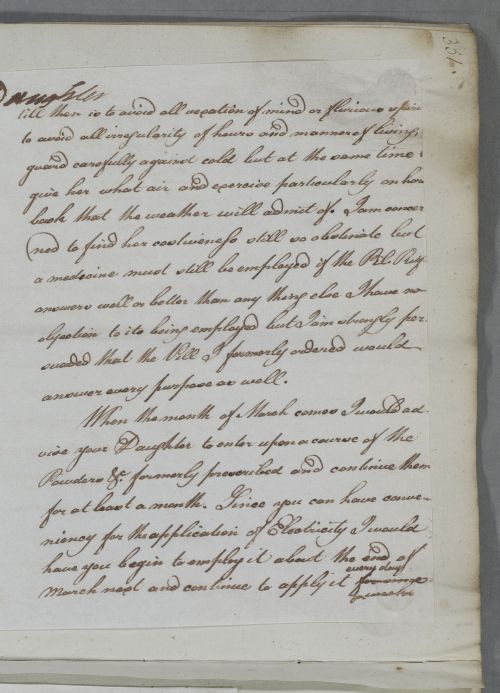 351.
Daughter
till then is to avoid all vexation of mind or
to avoid all irregularity of hours and manner of living,
guard carefully against cold but at the same time
give her what air and exercise particularly on hors
back that the weather will admit of. I am concer
ned to find her costiveness still so obstinate but
a medicine must still be employed if the Pil. Ruf.
answers well or better than any thing else I have no
objection to its being employed but I am strongly per-
suaded that the Pill I formerly ordered would
answer every purpose as well.
When the month of March comes I would ad
vise your Daughter to enter upon a course of the
Powders &c. formerly prescribed and continue them
for at least a month. Since you can have conve-
niency for the application of Electricity I would
have you begin to employ it about the end of
March next and continue to apply it every day for some
weeks